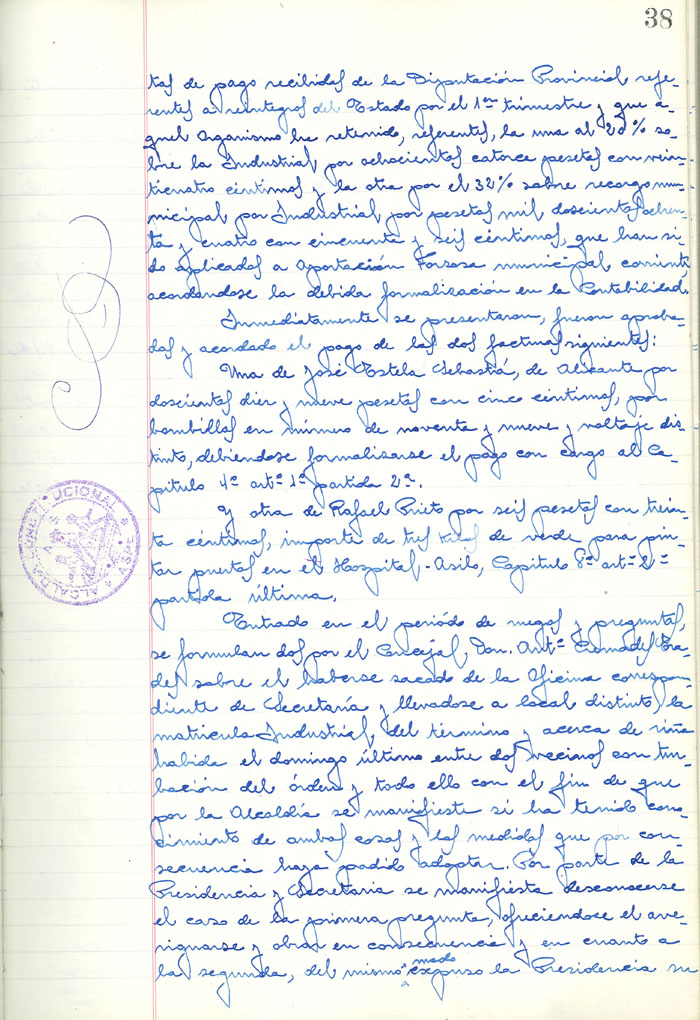 38
tas de pago recibidas de la Diputación Provincial refe-
rentes a reintegros del Estado por el 1er trimestre y que a-
quel Organismo ha retenido, referentes, la una al 20% so-
bre la Industrial por ochocientas catorce pesetas con vein-
ticuatro céntimos y la otra por el 32% sobre recargo mu-
nicipal por Industrial por pesetas mil doscientas ochen-
ta y cuatro con cincuenta y seis céntimos, que han si-
do aplicadas a Aportación Forzosa municipal corriente
acordandose la debida formalización en la Contabilidad.
Inmediatamente se presentaron, fueron aproba-
das y acordado el pago de las dos facturas siguientes:
Una de José Estela Sebastiá, de Alicante por
doscientas diez y nueve pesetas con cinco céntimos, por
bombillas en número de noventa y nueve y voltaje dis-
tinto, debiéndose formalizarse el pago con cargo al Ca-
pitulo 4º artº 1º partida 2ª.
Y otra de Rafael Prieto por seis pesetas con trein-
ta céntimos, importe de tres kilos de verde para pin-
tar puertas en el Hospital-Asilo, Capitulo 8º artº 2º
partida última.
Entrado en el periódo de ruegos y preguntas,
se formulan dos por el Concejal, Don. Antº Cremades Bra-
des sobre el haberse sacado de la Oficina correspon
diente de Secretaría y llevadose a local distinto, la
matricula Industrial, del término y acerca de riña
habida el domingo último entre dos vecinos con tur-
bación del órden y todo ello con el fin de que
por la Alcaldía se manifieste si ha tenido cono-
cimiento de ambas cosas y las medidas que por con-
secuencia haya podido adoptar. Por parte de la
Presidencia y Secretaria se manifiesta desconocerse
el caso de la primera pregunta, ofreciendose el ave-
riguarse y obrar en consecuencia y en cuanto a
la segunda, del mismo modo expuso la Presidencia su
ALCALDIA CONSTITUCIONAL